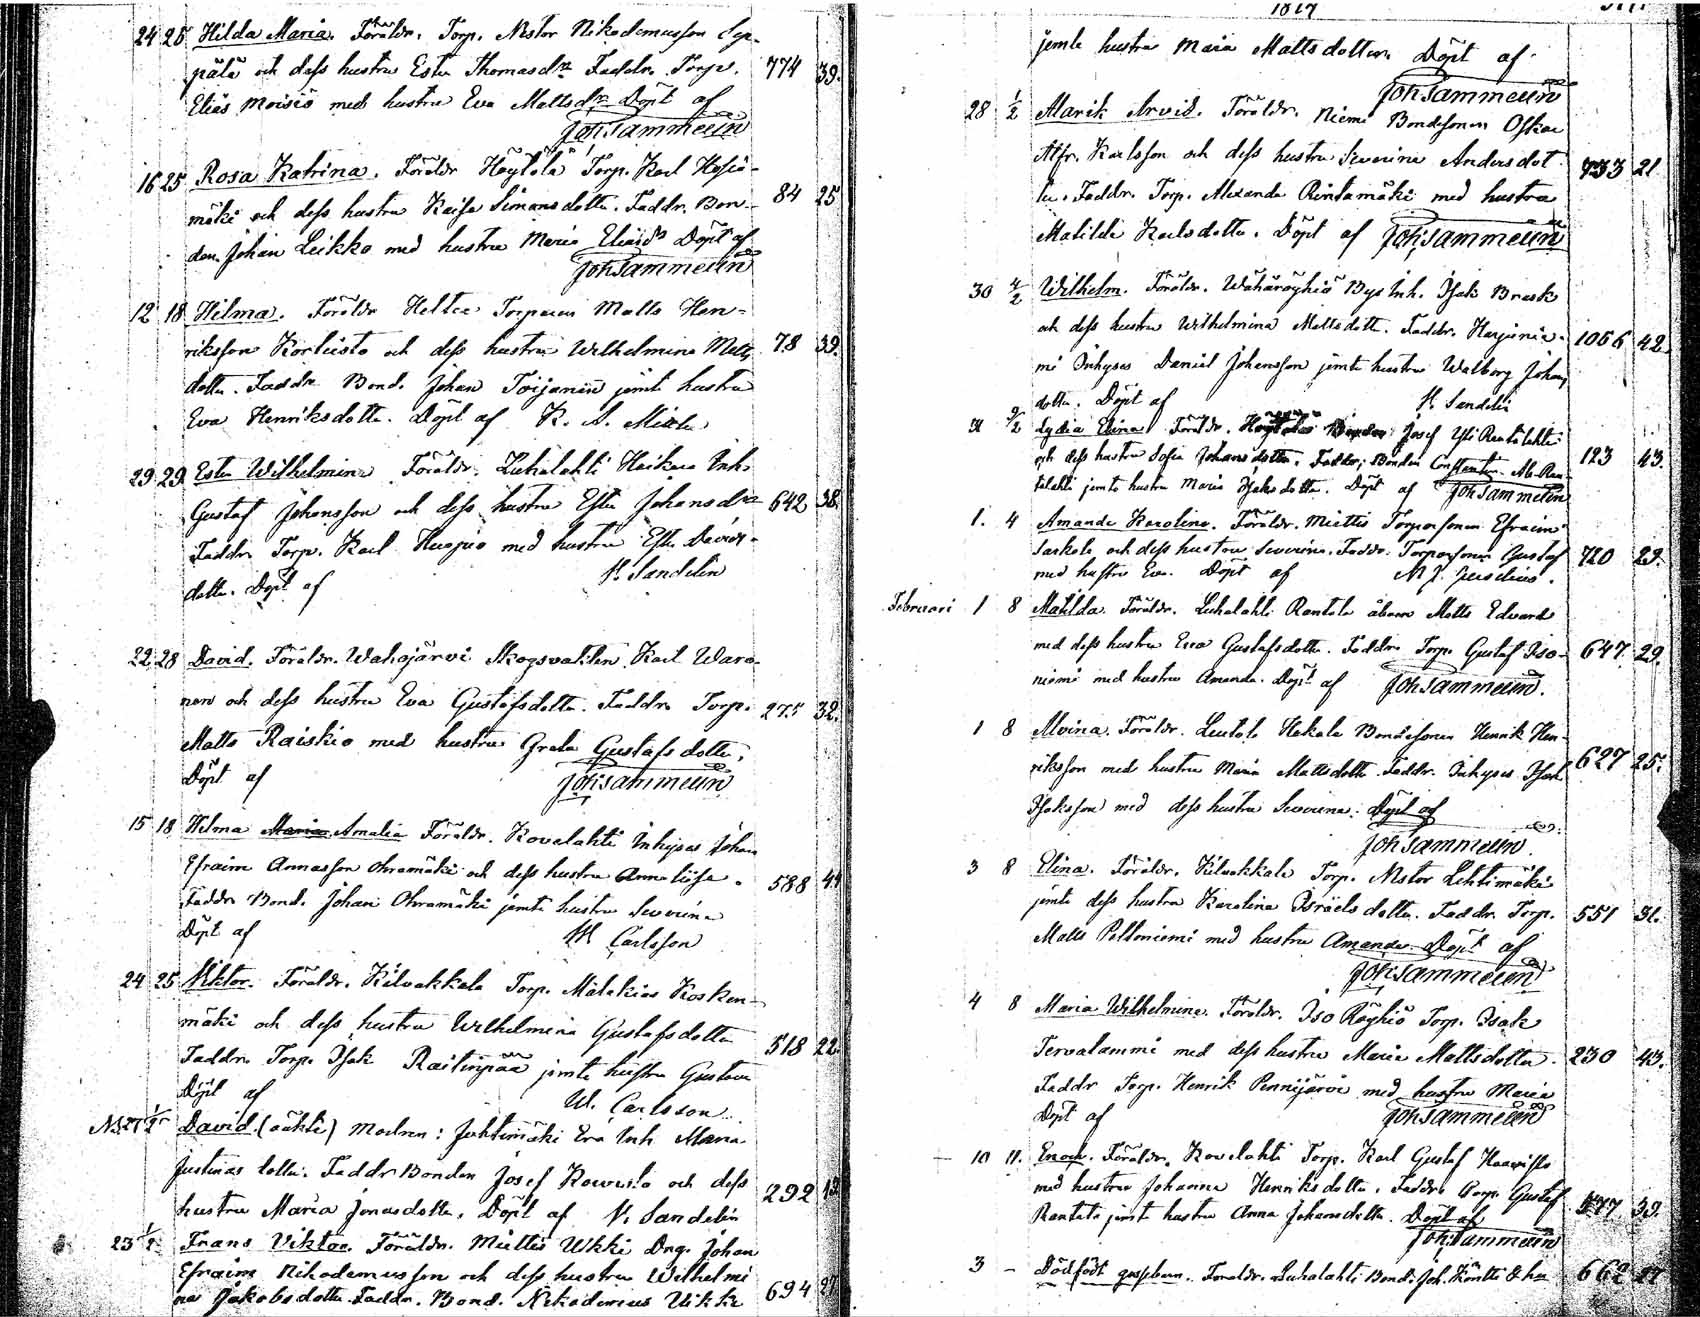 24 25 Hilda Maria. Föräldr. Torp. Nestor Nikodemusson Sep-
pälä och dess hustru Ester Thomasdr Faddr. Torp. 774 39.
Elias Moisio med hustru Eva Mattsdr Döpt af
Joh Sammelin
16 25 Rosa Katrina. Föräldr Höytölä Torp. Karl
mäki och dess hustru Kaisa Simonsdotter. Faddr. Bon- 84 25
den Johan Leikko med hustru Maria Eliasdr Döpt af
Joh Sammelin
12 18 Hilma. Föräldr Torparen Matts Hen-
riksson Korkiisto och dess hustru Wilhelmina Matts 78 39.
dotter. Faddr Bond. Johan Toijanen jemte hustru
Eva Henriksdotter. Döpt af K. A.
29 29 Ester Wilhelmina Föräldr. Luhalahti Heikura Inh.
Gustaf Johansson och dess hustru Ester Johansdr 642 38.
Faddr. Torp. Karl Kuopio med hustru Ester Davids-
dotter. Döpt af N. Sandelin
22 28 David. Föräldr. Wahojärvi Skogsvakten Karl Waro-
nen och dess hustru Eva Gustafsdotter. Faddr. Torp. 275 32.
Matts Raiskio med hustru Greta Gustafsdotter.
Döpt af Joh Sammelin
15 18 Hilma Maria Amalia Föräldr. Kovelahti Inhyses Johan
Efraim Annasson Ohramäki och dess hustru Anna Liisa. 588 44
Faddr. Bond. Johan Ohramäki jemte hustru Severina
Döpt af W Carlsson
24 25 Viktor. Föräldr. Kilvakkala Torp. Malakias Kosken-
mäki och dess hustru Wilhelmina Gustafsdotter 518 22.
Faddr. Torp. Isak Raitinpää jemte hustru Gustava
Döpt af W. Carlsson
27 1/2 David (oäkta) Modren: Juhtimäki Inh. Maria
Justinasdotter. Faddr Bonden Josef Kowero och dess 292
hustru Maria Jonasdotter. Döpt af N. Sandelin
23 Frans Viktor. Föräldr. Miettis Ukki Drg. Johan
Efraim Nikodemusson och dess hustru Wilhelmi
na Jakobsdotter. Faddr. Bond. Nikodemus Ukki 694 27
jemte hustru Maria Mattsdotter. Döpt af
Joh Sammelin
28 1/2 Alarik Arvid. Föräldr. Niemi Bondesonen Oskar
Alfr. Karlsson och dess hustru Severina Andersdot 733 21
ter. Faddr. Torp. Alexander Rintamäki med hustru
Matilda Karlsdotter. Döpt af Joh Sammelin
30 4/2 Wilhelm. Föräldr. Wähäröyhiö Bys Inh. Isak Brask
och dess hustru Wilhelmina Mattsdotter. Faddr. Harjunie- 1066 42.
mi Inhyses Daniel Johansson jemte hustru Walborg Johans
dotter. Döpt af N. Sandelin
31 9/2 Lydia Elina Föräldr. Josef Yli Rantalahti
och dess hustru Sofia Johansdotter. Faddr; Bonden Constantin Ala Ran- 123 43.
talahti jemte hustru Maria Isaksdotter. Döpt af Joh Sammelin
1. 4 Amanda Karolina. Föräldr. Miettis Torparsonen Efraim
och dess hustru Severina. Faddr. Torparsonen Gustaf 720 29.
med hustru Eva. Döpt af
Februari 1 8 Matilda. Föräldr. Luhalahti Rantala åboen Matts Edvard
med dess hustru Eva Gustafsdotter. Faddr. Torp. Gustaf Iso- 647 29.
niemi med hustru Amanda. Döpt af Joh Sammelin.
1 8 Alvina. Föräldr. Leutola Hakala Bondesonen Henrik Hen-
riksson med hustru Maria Mattsdotter. Faddr. Inhyses Isak 627 25.
Isaksson med dess hustru Severina. Döpt af
Joh Sammelin.
3 8 Elina. Föräldr. Kilvakkala Torp. Nestor Lehtimäki
jemte dess hustru Karolina Israelsdotter. Faddr. Torp. 551 31.
Matts Peltoniemi med hustru Amanda. Döpt af
Joh Sammelin
4 8 Maria Wilhelmina. Föräldr. Iso Röyhiö Torp. Isak
Tervalammi med dess hustru Maria Mattsdotter. 230 43.
Faddr Torp. Henrik Pennijärvi med hustru Maria
Döpt af Joh Sammelin
10 11. Enoch. Föräldr. Kovelahti Torp. Karl Gustaf Haavisto
med hustru Johanna Henriksdotter. Faddr. Torp. Gustaf 577 39.
Rantala jemt hustru Anna Johansdotter. Döpt af
Joh Sammelin
3 – Dödfödt gossebarn. Föräldr. Luhalahti Bond. Joh. Köntti & hu 662 27